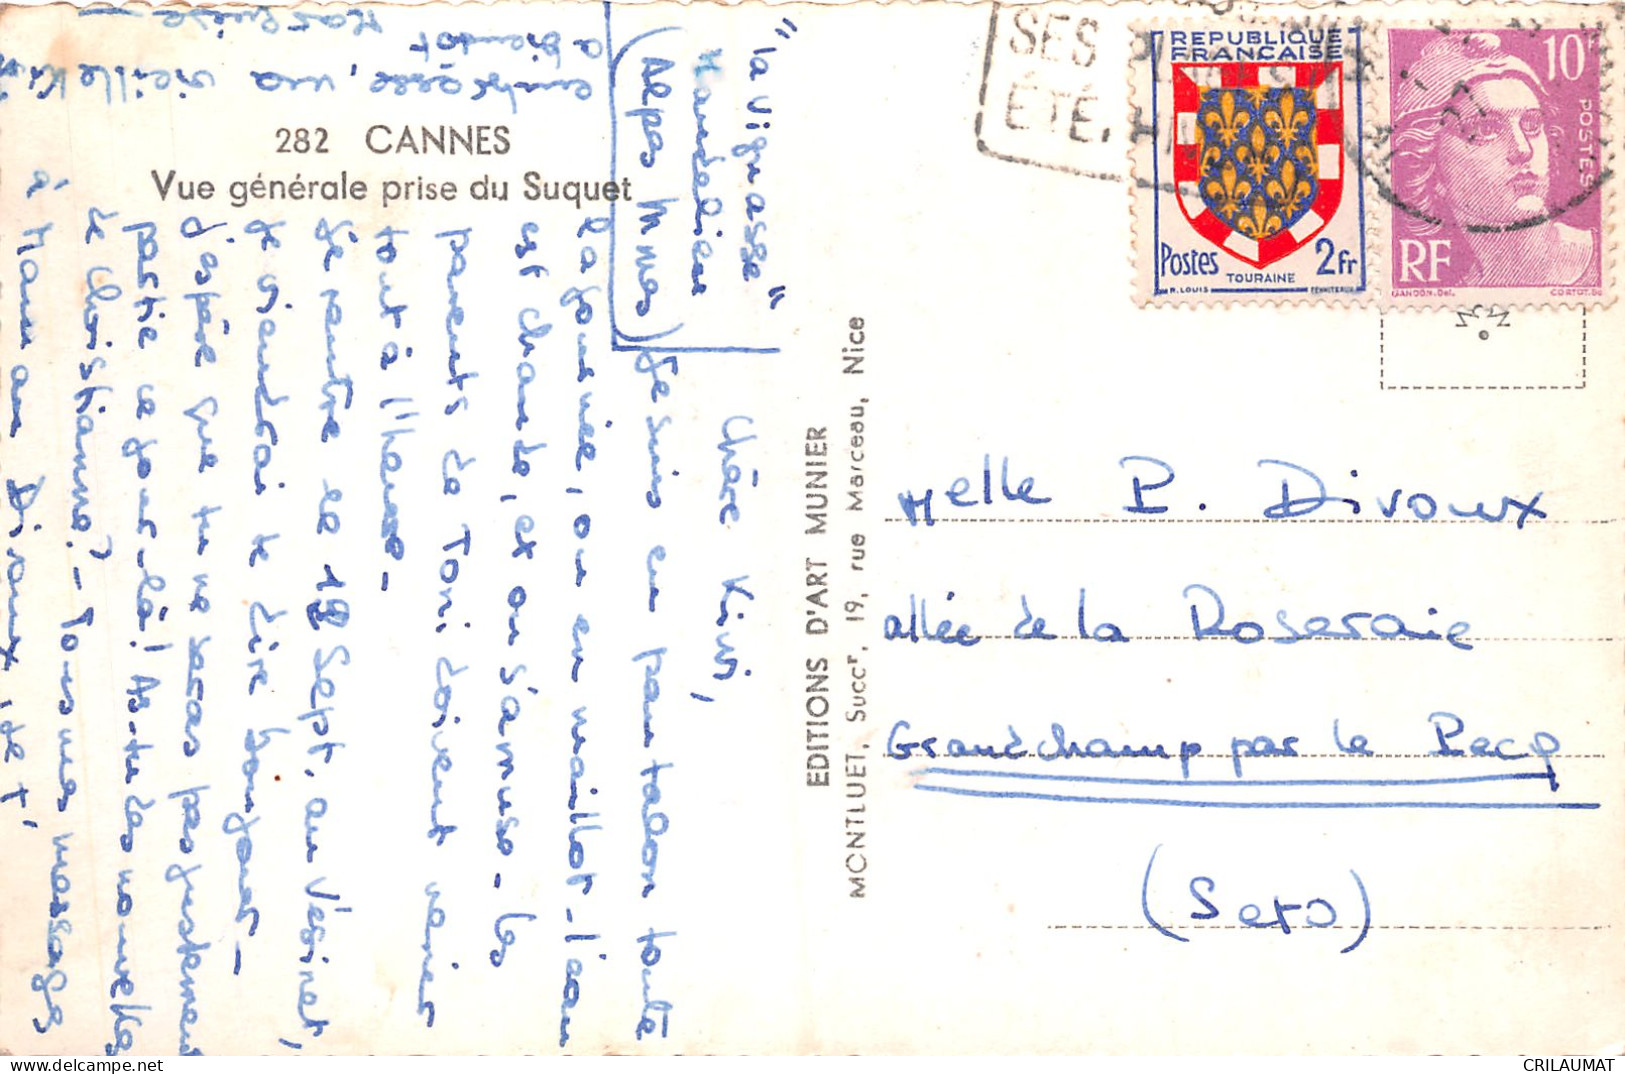 282 CANNES
Vue générale prise du Suquet
"La Vignasse"
Mandelieu
(Alpes Mmes)
Chère Kivi,
Je suis en pantalon toute
la journée, ou en maillot - l'eau
est chaude, et on s'amuse - Les
parents de Toni doivent venir
tout à l'heure -
Je rentre le 12 Sept. au Vésinet,
je viendrai te dire bonjour -
j'espère que tu ne seras pas justement
partie ce jour là! As-tu des nouvelles
de Christiane? - Tous mes messages
à Maman Divoux, de T,
embrasse, ma vieille Kivi
à bientôt
EDITIONS D'ART MUNIER
MONTLUET, Succr, 19, rue Marceau, Nice
SES
ÉTÉ, HI
REPUBLIQUE
FRANÇAISE
Postes 2fr
TOURAINE
R. LOUIS
10F
POSTES
RF
GANDON.Del.
CORTOT.Sc
Melle P. Divoux
allée de la Roseraie
Grandchamp par le Pecq
(Seto)
CRILAUMAT